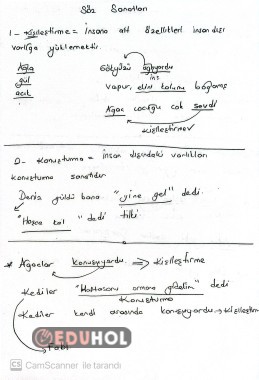 Söz Sanatları
1- Kişileştirme = İnsana ait özellikleri insan dışı
varlığa yüklemektir.
Ağla
gül
acık
Gökyüzü ağlıyordu
ins
vapur, elini kolunu bağlamış
Ağaç çocuğu çok sevdi
Kişileştirme
2- Konuşturma = insan dışındaki varlıkları
konuşturma sanatıdır.
Deniz güldü bana "yine gel" dedi.
"Hoşça kal" dedi tilki
* Ağaçlar konuşuyordu. => Kişileştirme
Kediler "Haftasonu ormana gidelim" dedi
Konuşturma
Kediler kendi arasında konuşuyordu -> Kişileştirme
Fabl
EDUHOL
CS CamScanner ile tarandı